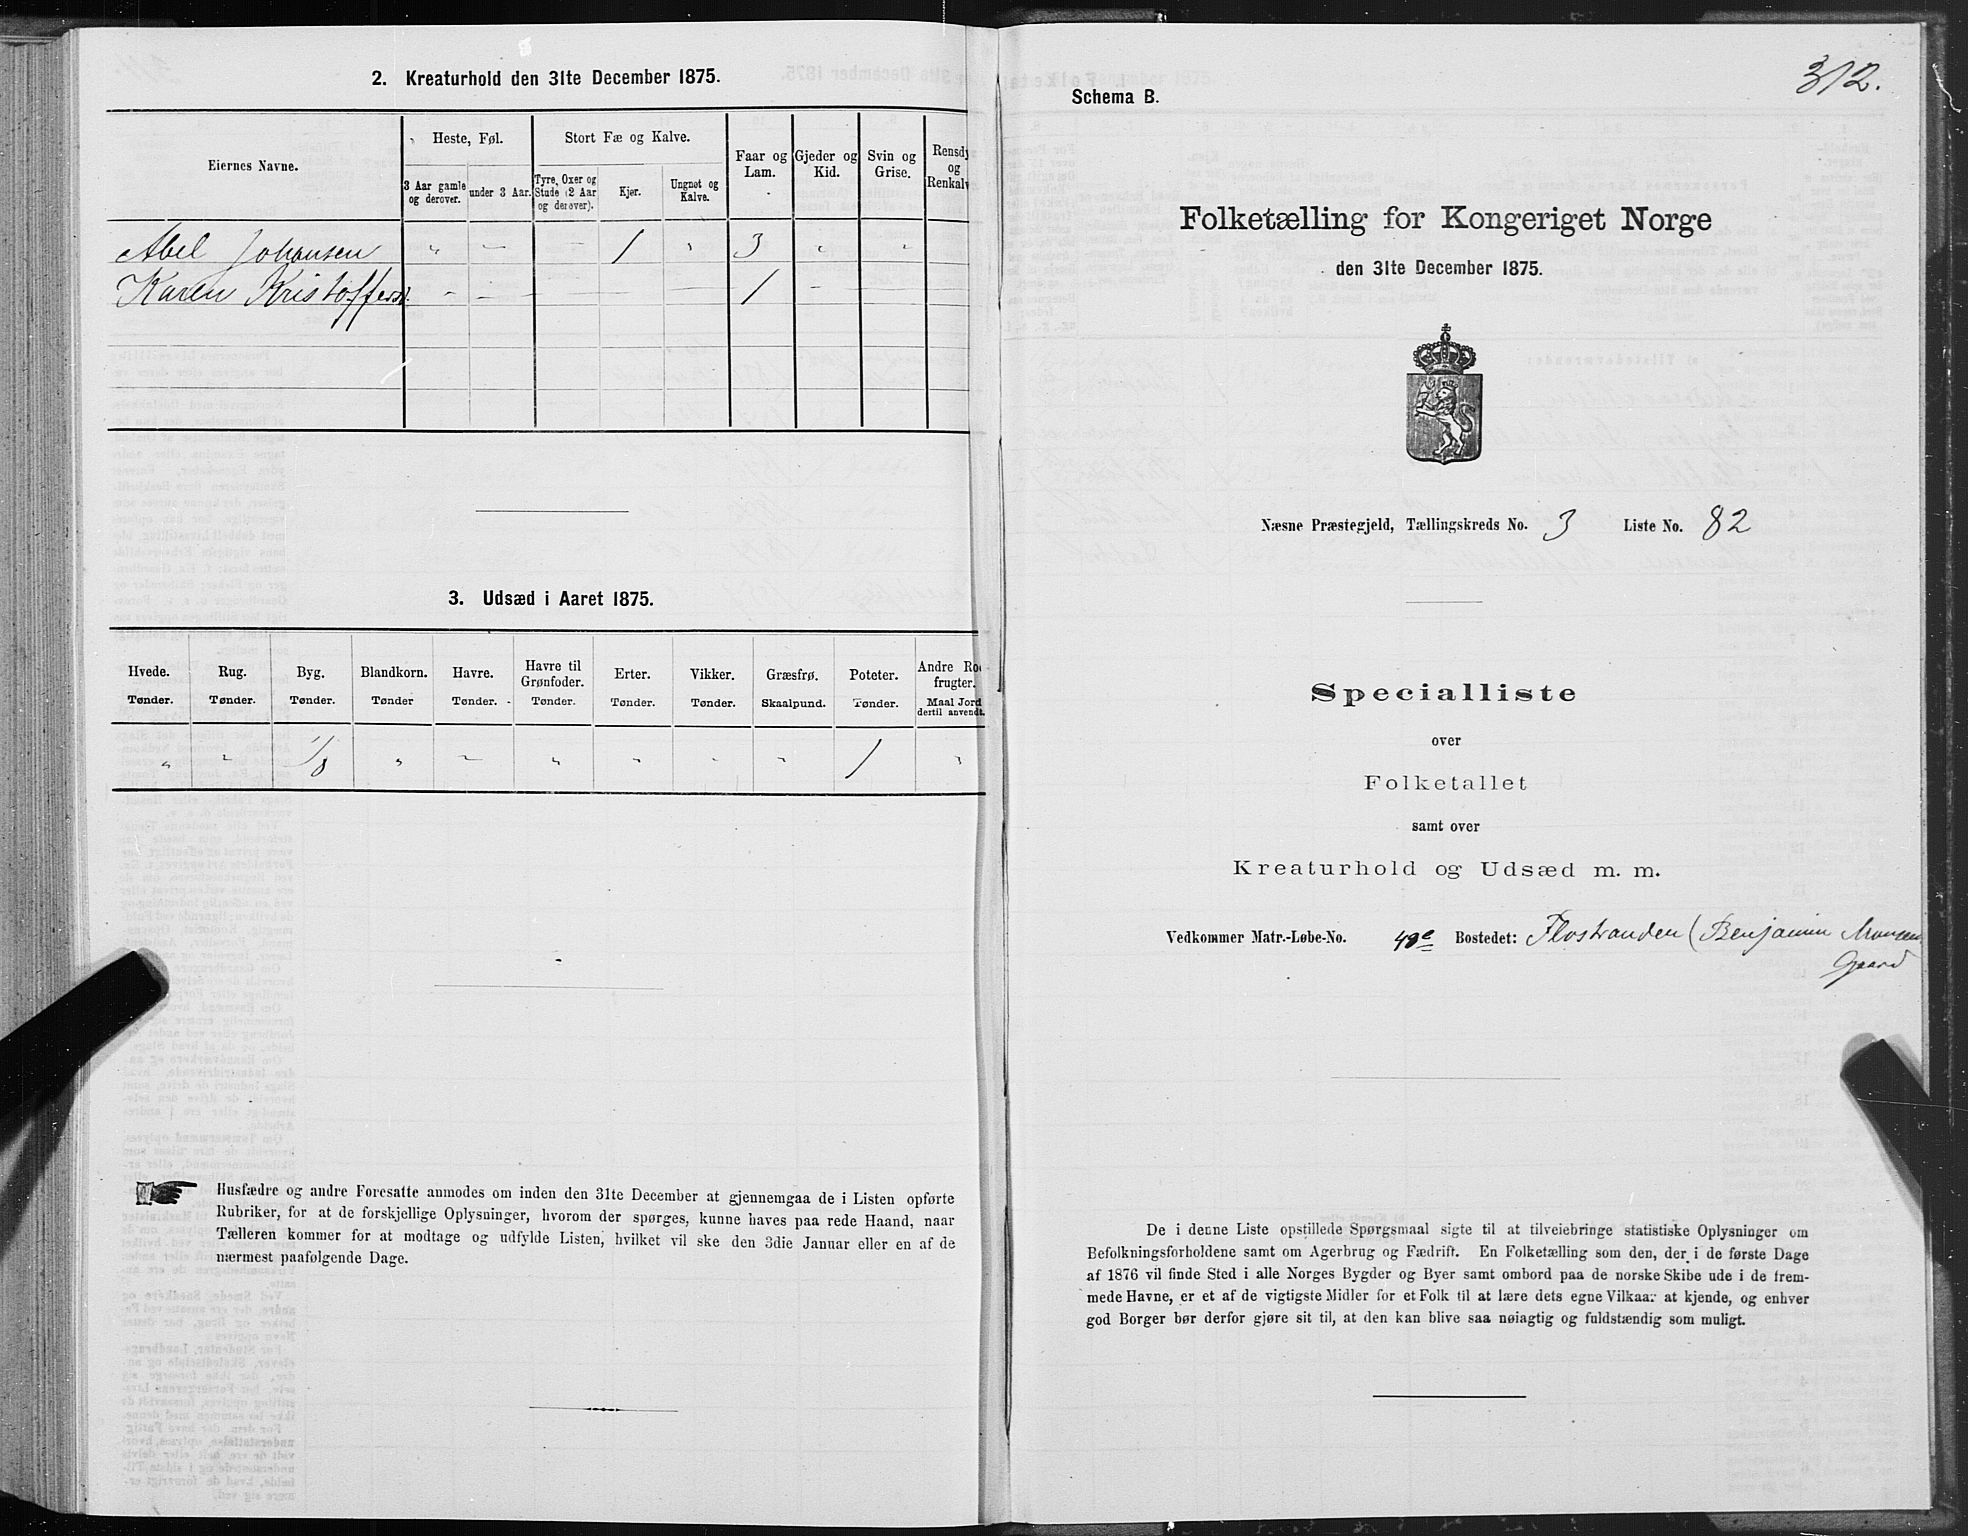 2. Kreaturhold den 31te December 1875.
Eiernes Navne.
Heste, Føl.
Stort Fæ og Kalve.
Faar og Lam.
Gjeder og Kid.
Svin og Grise.
Rensdy
og
Renkalv
3 Aar gamle og derover.
under 3 Aar.
Tyre, Oxer og Stude (2 Aar og derover).
Kjør.
Ungnøt og Kalve.
Abel Johansen " – – 1 " 3 " "
Karen Kristoffersd. – – – 1 – –
3. Udsæd i Aaret 1875.
Hvede. Rug. Byg. Blandkorn. Havre. Havre til Grønfoder. Erter. Vikker. Græsfrø. Poteter. Andre Ro frugter.
Tønder. Tønder. Tønder. Tønder Tønder. Tønder. Tønder. Tønder. Skaalpund. Tønder. Maal Jord dertil anvendt.
" " 1/8 " – " " " " 1 "
Husfædre og andre Foresatte anmodes om inden den 31te December at gjennemgaa de i Listen opførte
Rubriker, for at de forskjellige Oplysninger, hvorom der spørges, kunne haves paa rede Haand, naar
Tælleren kommer for at modtage og udfylde Listen, hvilket vil ske den 3die Januar eller en af de
nærmest paafølgende Dage.
312.
Schema B.
Folketælling for Kongeriget Norge
den 31te December 1875.
Næsne Præstegjeld, Tællingskreds No. 3 Liste No. 82
Specialliste
over
Folketallet
samt over
Kreaturhold og Udsæd m. m.
Vedkommer Matr.-Løbe-No. 48e Bostedet: Flostranden (Benjamin
Gaard
De i denne Liste opstillede Spørgsmaal sigte til at tilveiebringe statistiske Oplysninger om
Befolkningsforholdene samt om Agerbrug og Fædrift. En Folketælling som den, der i de første Dage
af 1876 vil finde Sted i alle Norges Bygder og Byer samt ombord paa de norske Skibe ude i de frem-
mede Havne, er et af de vigtigste Midler for et Folk til at lære dets egne Vilkaar at kjende, og enhver
god Borger bør derfor gjøre sit til, at den kan blive saa nøiagtig og fuldstændig som muligt.